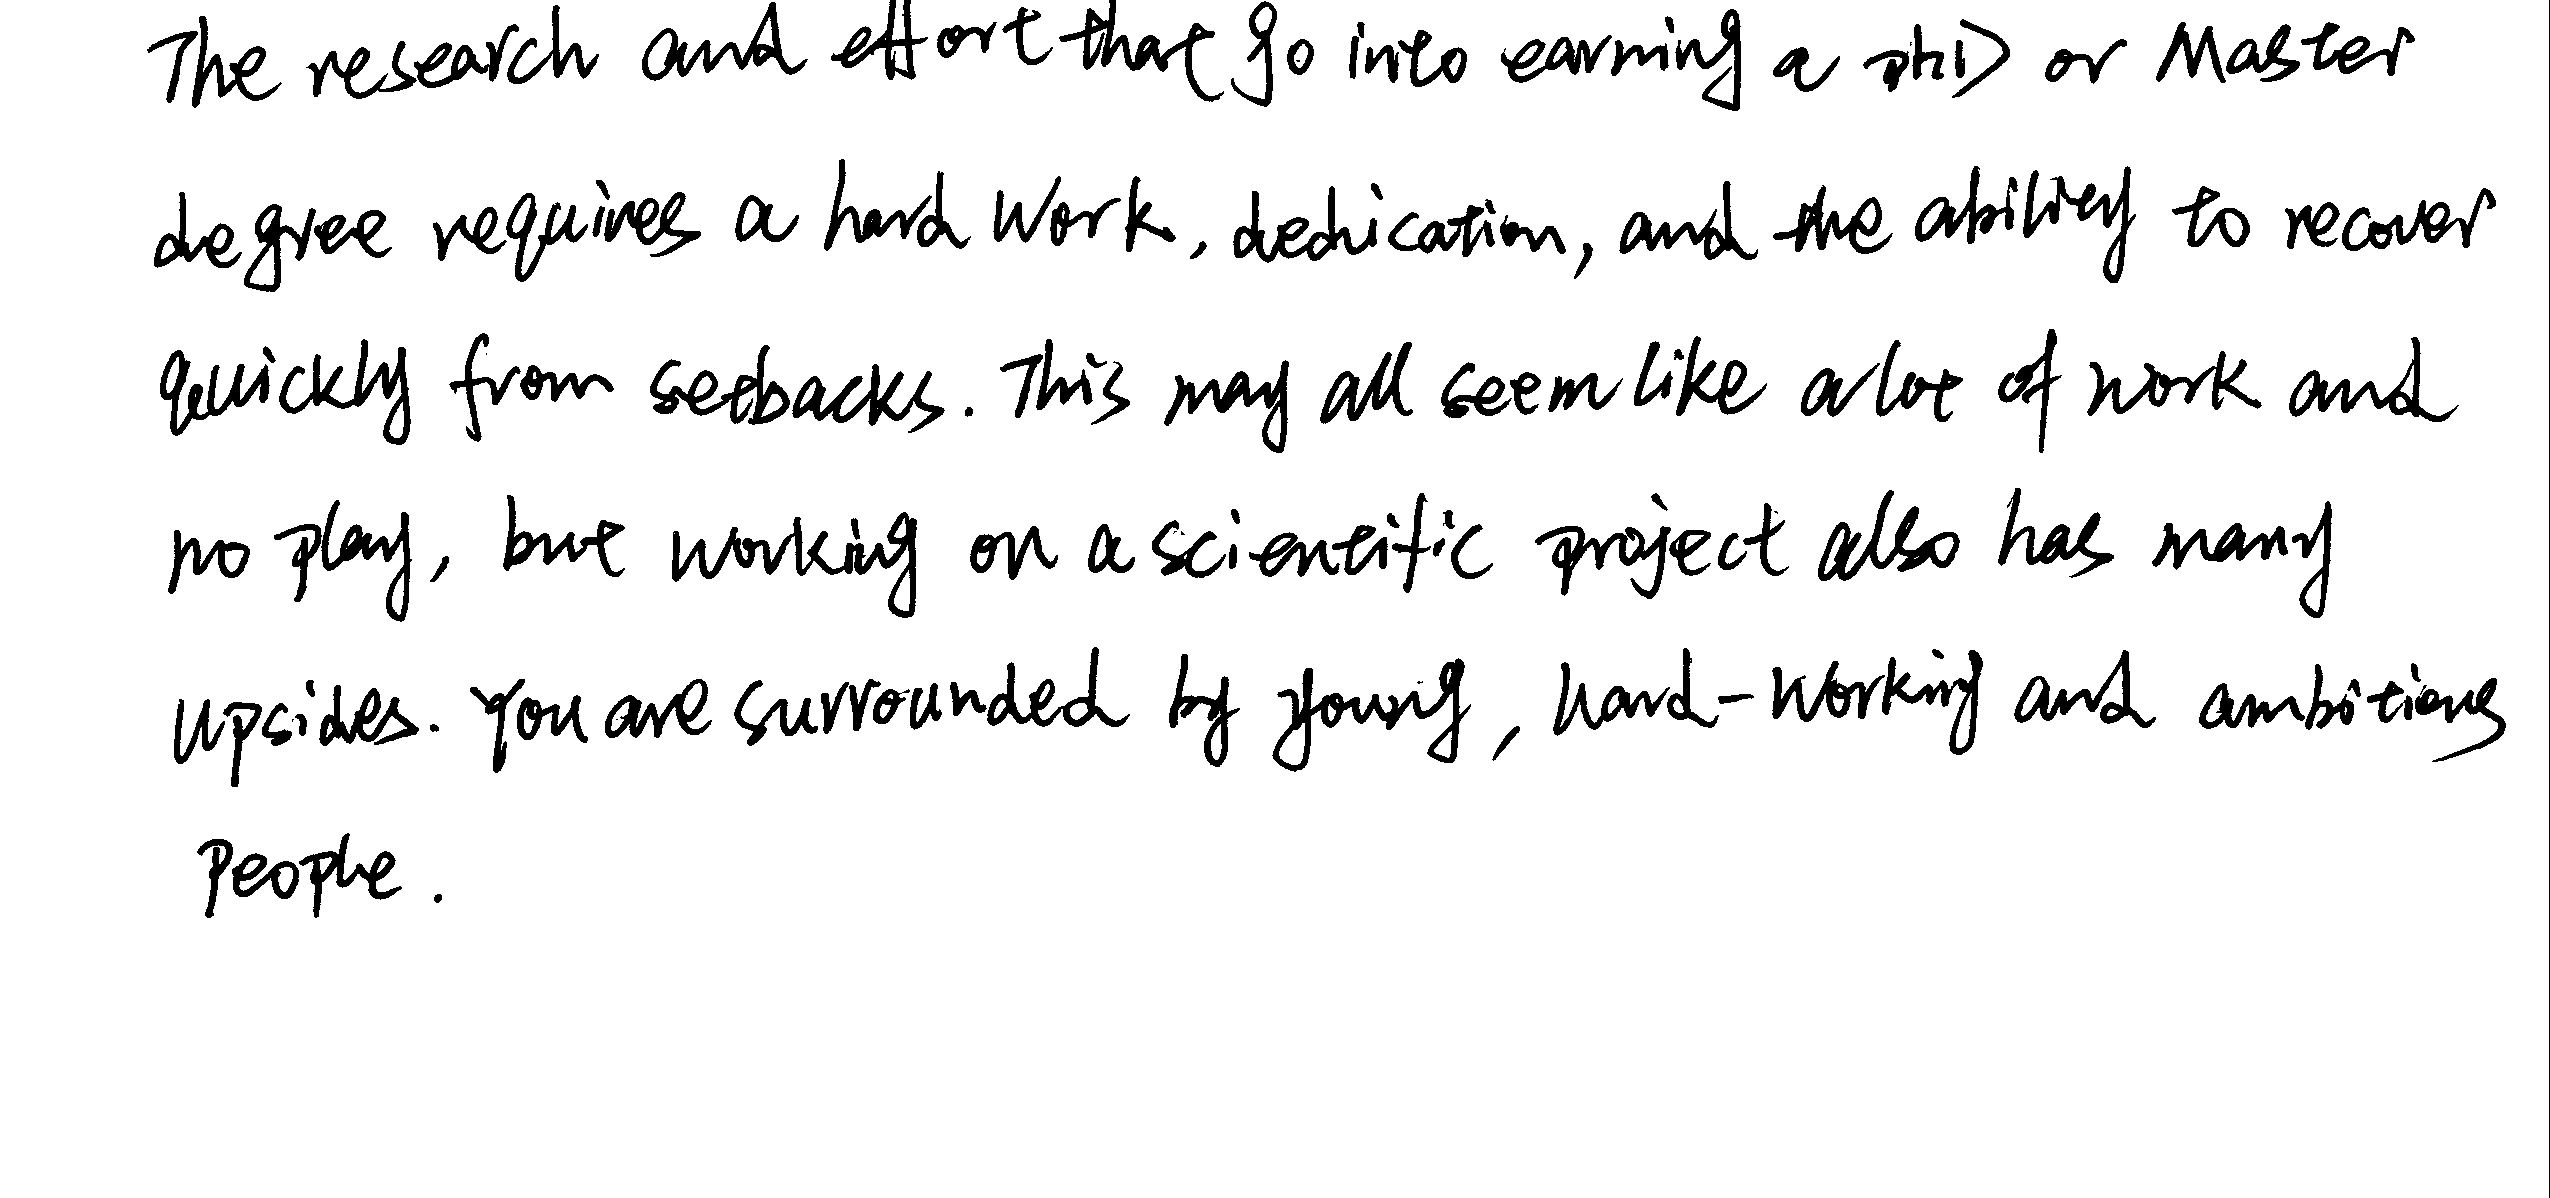 The research and effort that go into earning a phD or Master
degree requires a hard work, dedication, and the ability to recover
quickly from setbacks. This may all seem like a lot of work and
no play, but working on a scientific project also has many
upsides. You are surrounded by young, hard-working and ambitious
people.